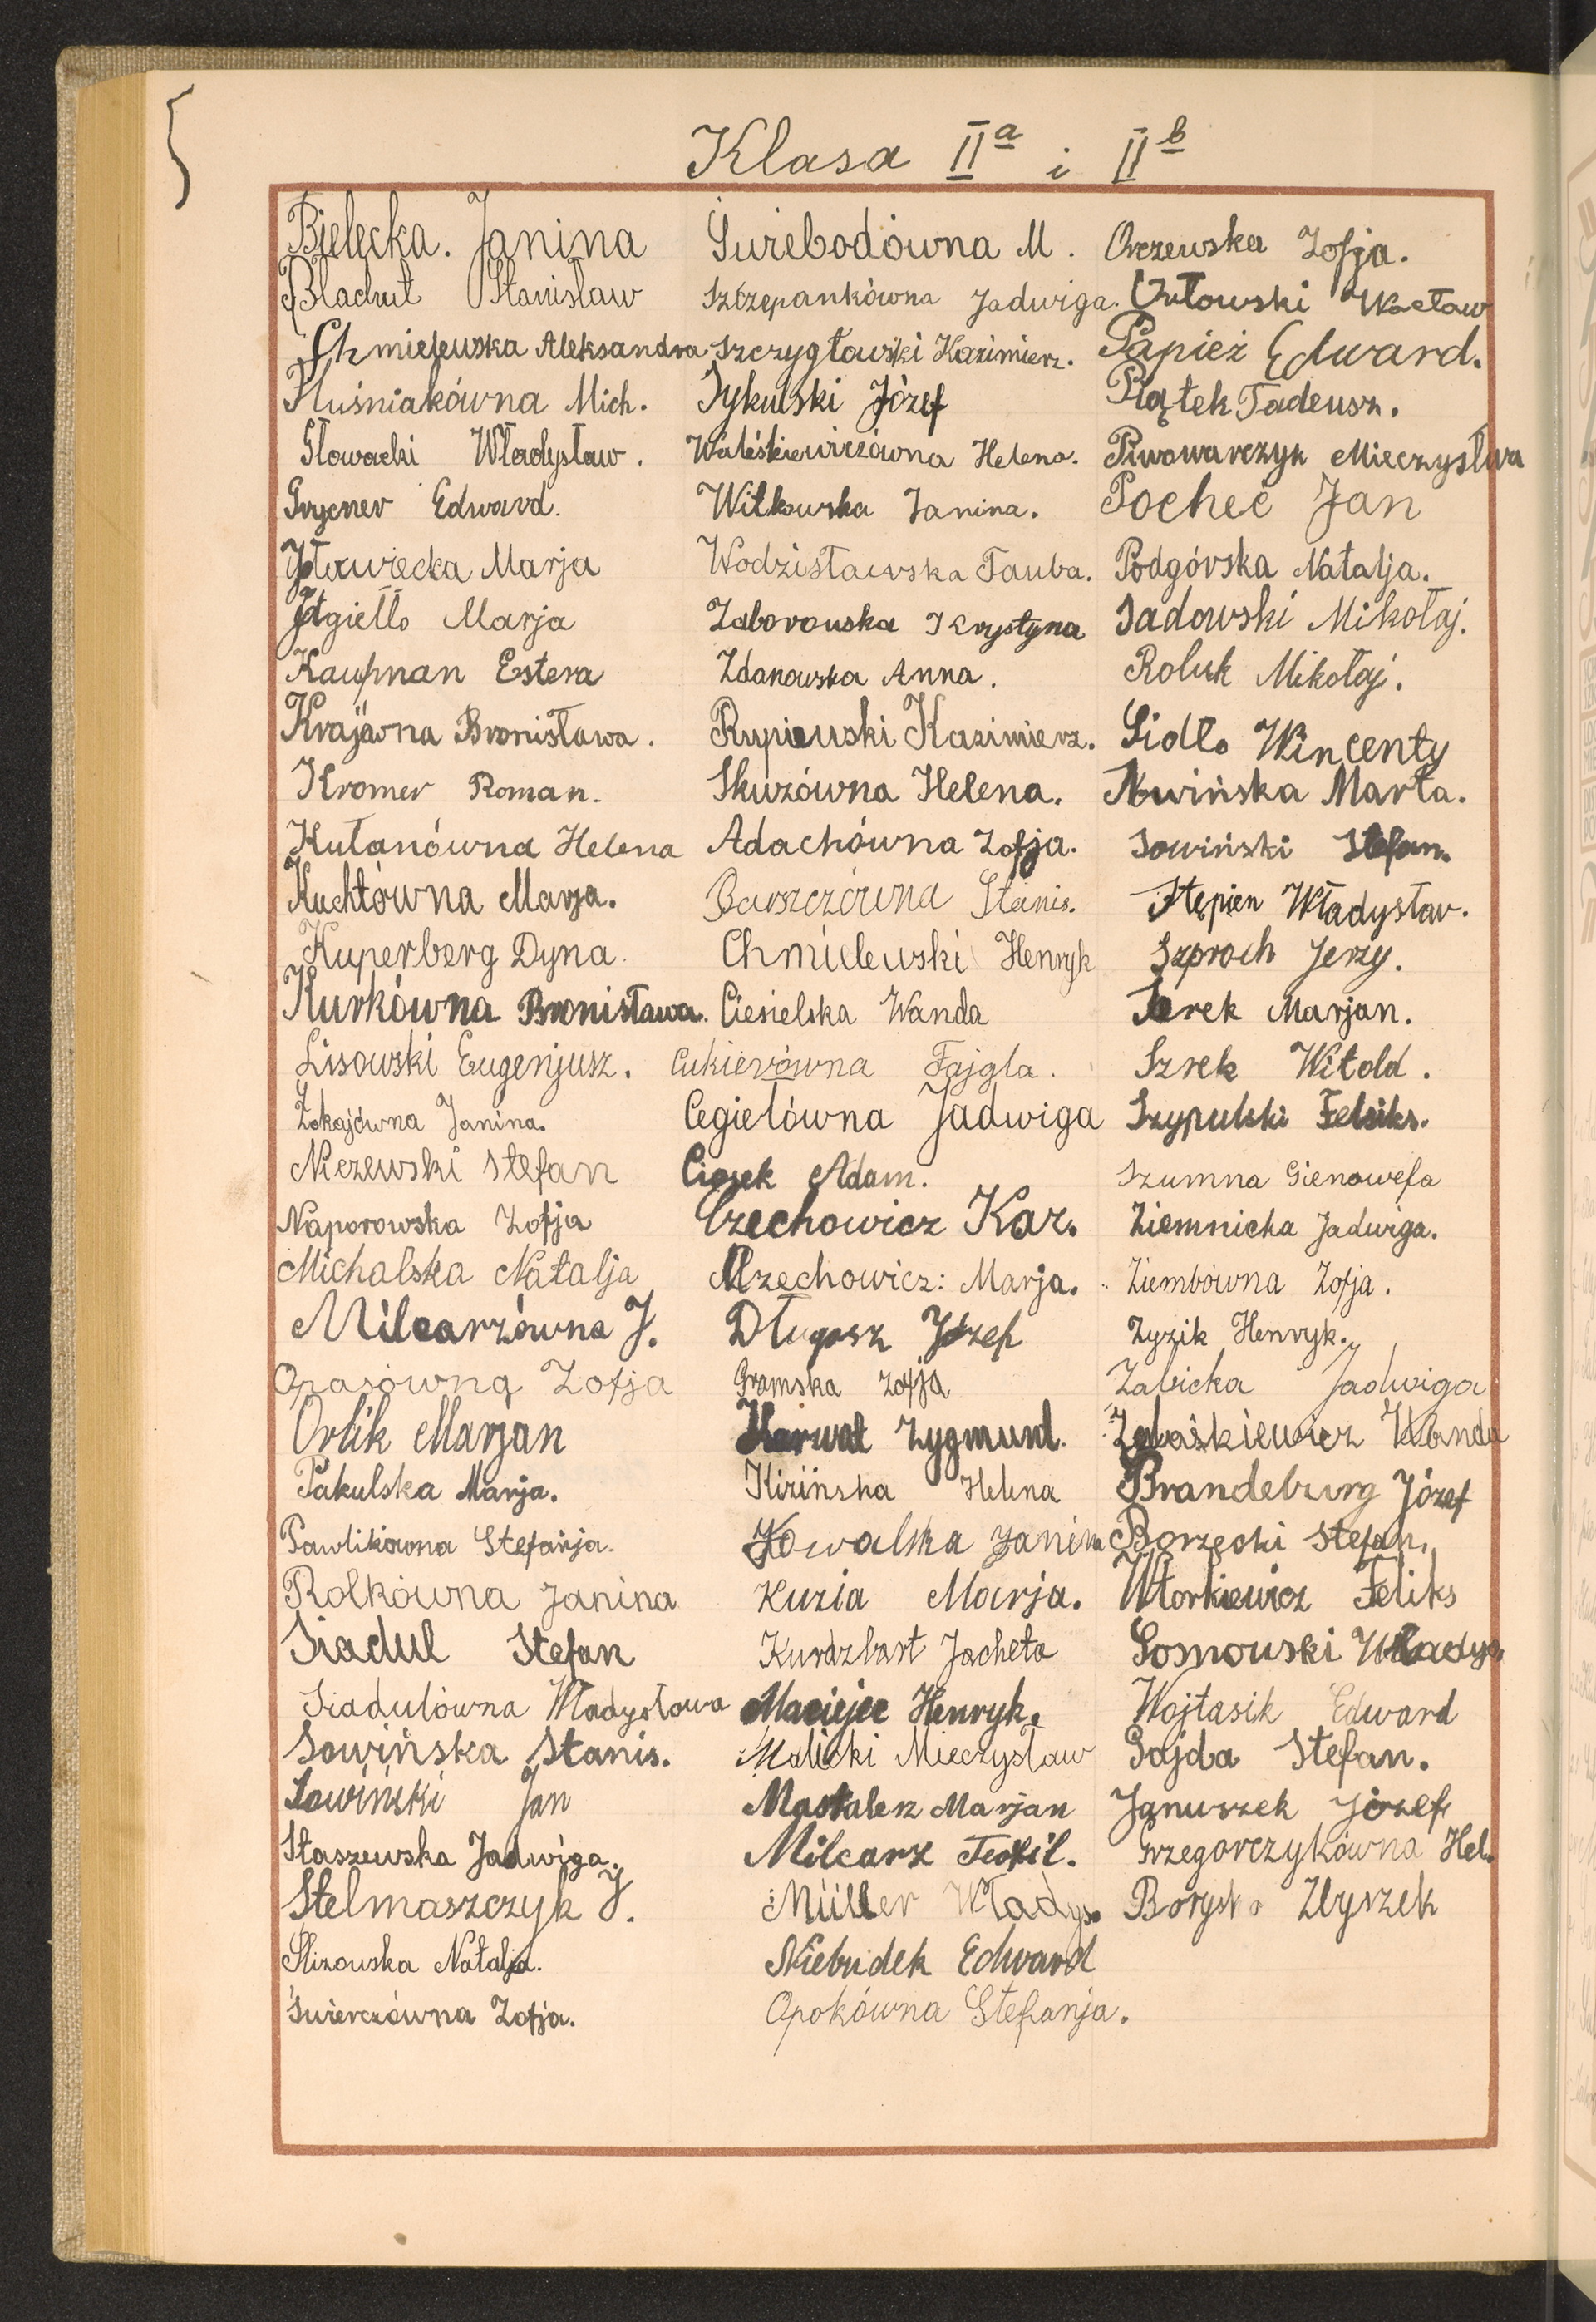 Klasa IIa i IIb
Bielecka. Janina
Blachut Stanisław
Chmielewska Aleksandra
Fluśniakówna Mich.
Głowacki Władysław.
Grycner Edward.
Iłowiecka Marja
Jagiełło Marja
Kaufman Estera
Krajówna Bronisława.
Kromer Roman.
Kułanówna Helena
Kuchtówna Marja.
Kuperberg Dyna.
Kurkówna Bronisława.
Lisowski Eugenjusz.
Łokajówna Janina.
Niezewski Stefan
Naporowska Zofja
Michalska Natalja
Milcarzówna J.
Opasówna Zofja
Orlik Marjan
Pakulska Marja.
Pawlikówna Stefanja.
Rolkówna Janina
Siadul Stefan
Siadulówna Władysława
Sowińska Stanis.
Sowiński Jan
Staszewska Jadwiga.
Stelmaszczyk J.
Ślizowska Natalja.
Świerczówna Zofja.
Świebodówna M.
Szczepankówna Jadwiga.
Szczygłowski Kazimierz.
Tykulski Józef
Waleśkiewiczówna Helena.
Wilkowska Janina.
Wodzisławska Tauba.
Zaborowska Krystyna
Zdanowska Anna.
Rupiewski Kazimierz.
Skuzówna Helena.
Adachówna Zofja.
Barszczówna Stanis.
Chmielewski Henryk
Ciesielska Wanda
Cukierówna Fajgla.
Cegiełówna Jadwiga
Ciosek Adam.
Czechowicz Kaz.
Czechowicz: Marja.
Długosz Józef
Gramska Zofja
Karwat Zygmunt.
Kizińska Helena
Kowalska Janina
Kuzia Marja.
Kurdzbart Jacheta
Maciejec Henryk.
Malicki Mieczysław
Mastalerz Marjan
Milcarz Teofil.
Müller Władys.
Niebudek Edward
Opokówna Stefanja.
Orzewska Zofja.
Orłowski Wacław
Papież Edward.
Piątek Tadeusz.
Piwowarczyk Mieczysława
Pocheć Jan
Podgórska Natalja.
Sadowski Mikołaj.
Roluk Mikołaj.
Sidło Wincenty
Nowińska Marta.
Sowiński Stefan.
Stępien Władysław.
Szproch Jerzy.
Serek Marjan.
Szrek Witold.
Szypulski Feliks.
Szumna Gienowefa
Ziemnicka Jadwiga.
Ziembówna Zofja.
Zyzik Henryk.
Żabicka Jadwiga
Wanda
Brandeburg Józef
Borzęcki Stefan.
Wtorkiewicz Feliks
Sosnowski Władys.
Wojtasik Edward
Gajda Stefan.
Januszek Józef
Grzegorczykówna Hel.
Boryska Zbyszek